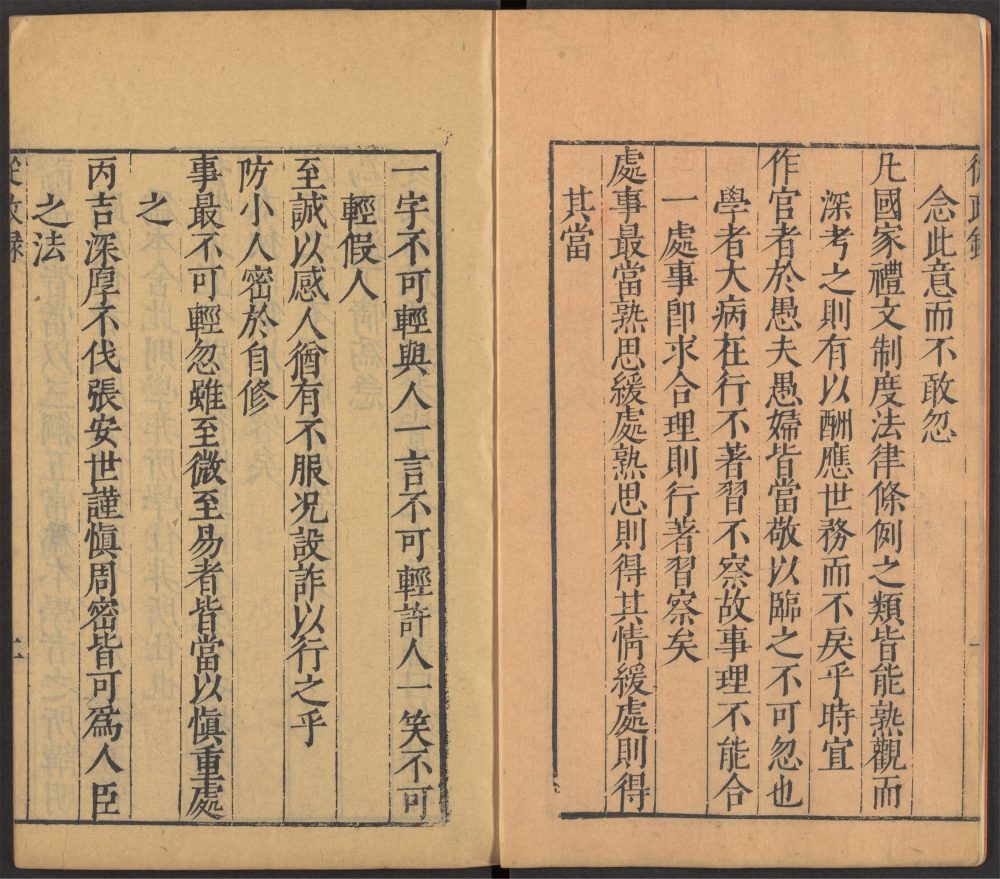 從政錄
念此意而不敢忽
凡國家禮文制度法律條例之類皆能熟觀而
深考之則有以酬應世務而不戾乎時宜
作官者於愚夫愚婦皆當敬以臨之不可忽也
學者大病在行不著習不察故事理不能合
一處事卽求合理則行著習察矣
處事最當熟思緩處熟思則得其情緩處則得
其當
一字不可輕與人一言不可輕許人一笑不可
輕假人
至誠以感人猶有不服况設詐以行之乎
防小人密於自修
事最不可輕忽雖至微至易者皆當以愼重處
之
丙吉深厚不伐張安世謹愼周密皆可爲人臣
之法
從政錄
二